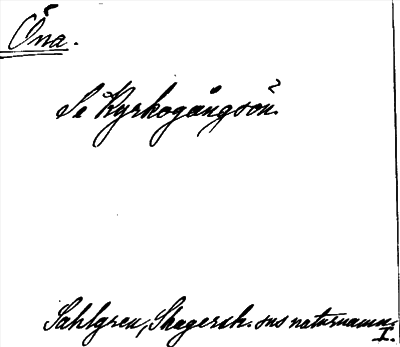 Öna.
Se Kyrkogångsön.
Sahlgren, Skagersh. sns naturnamn.
I.